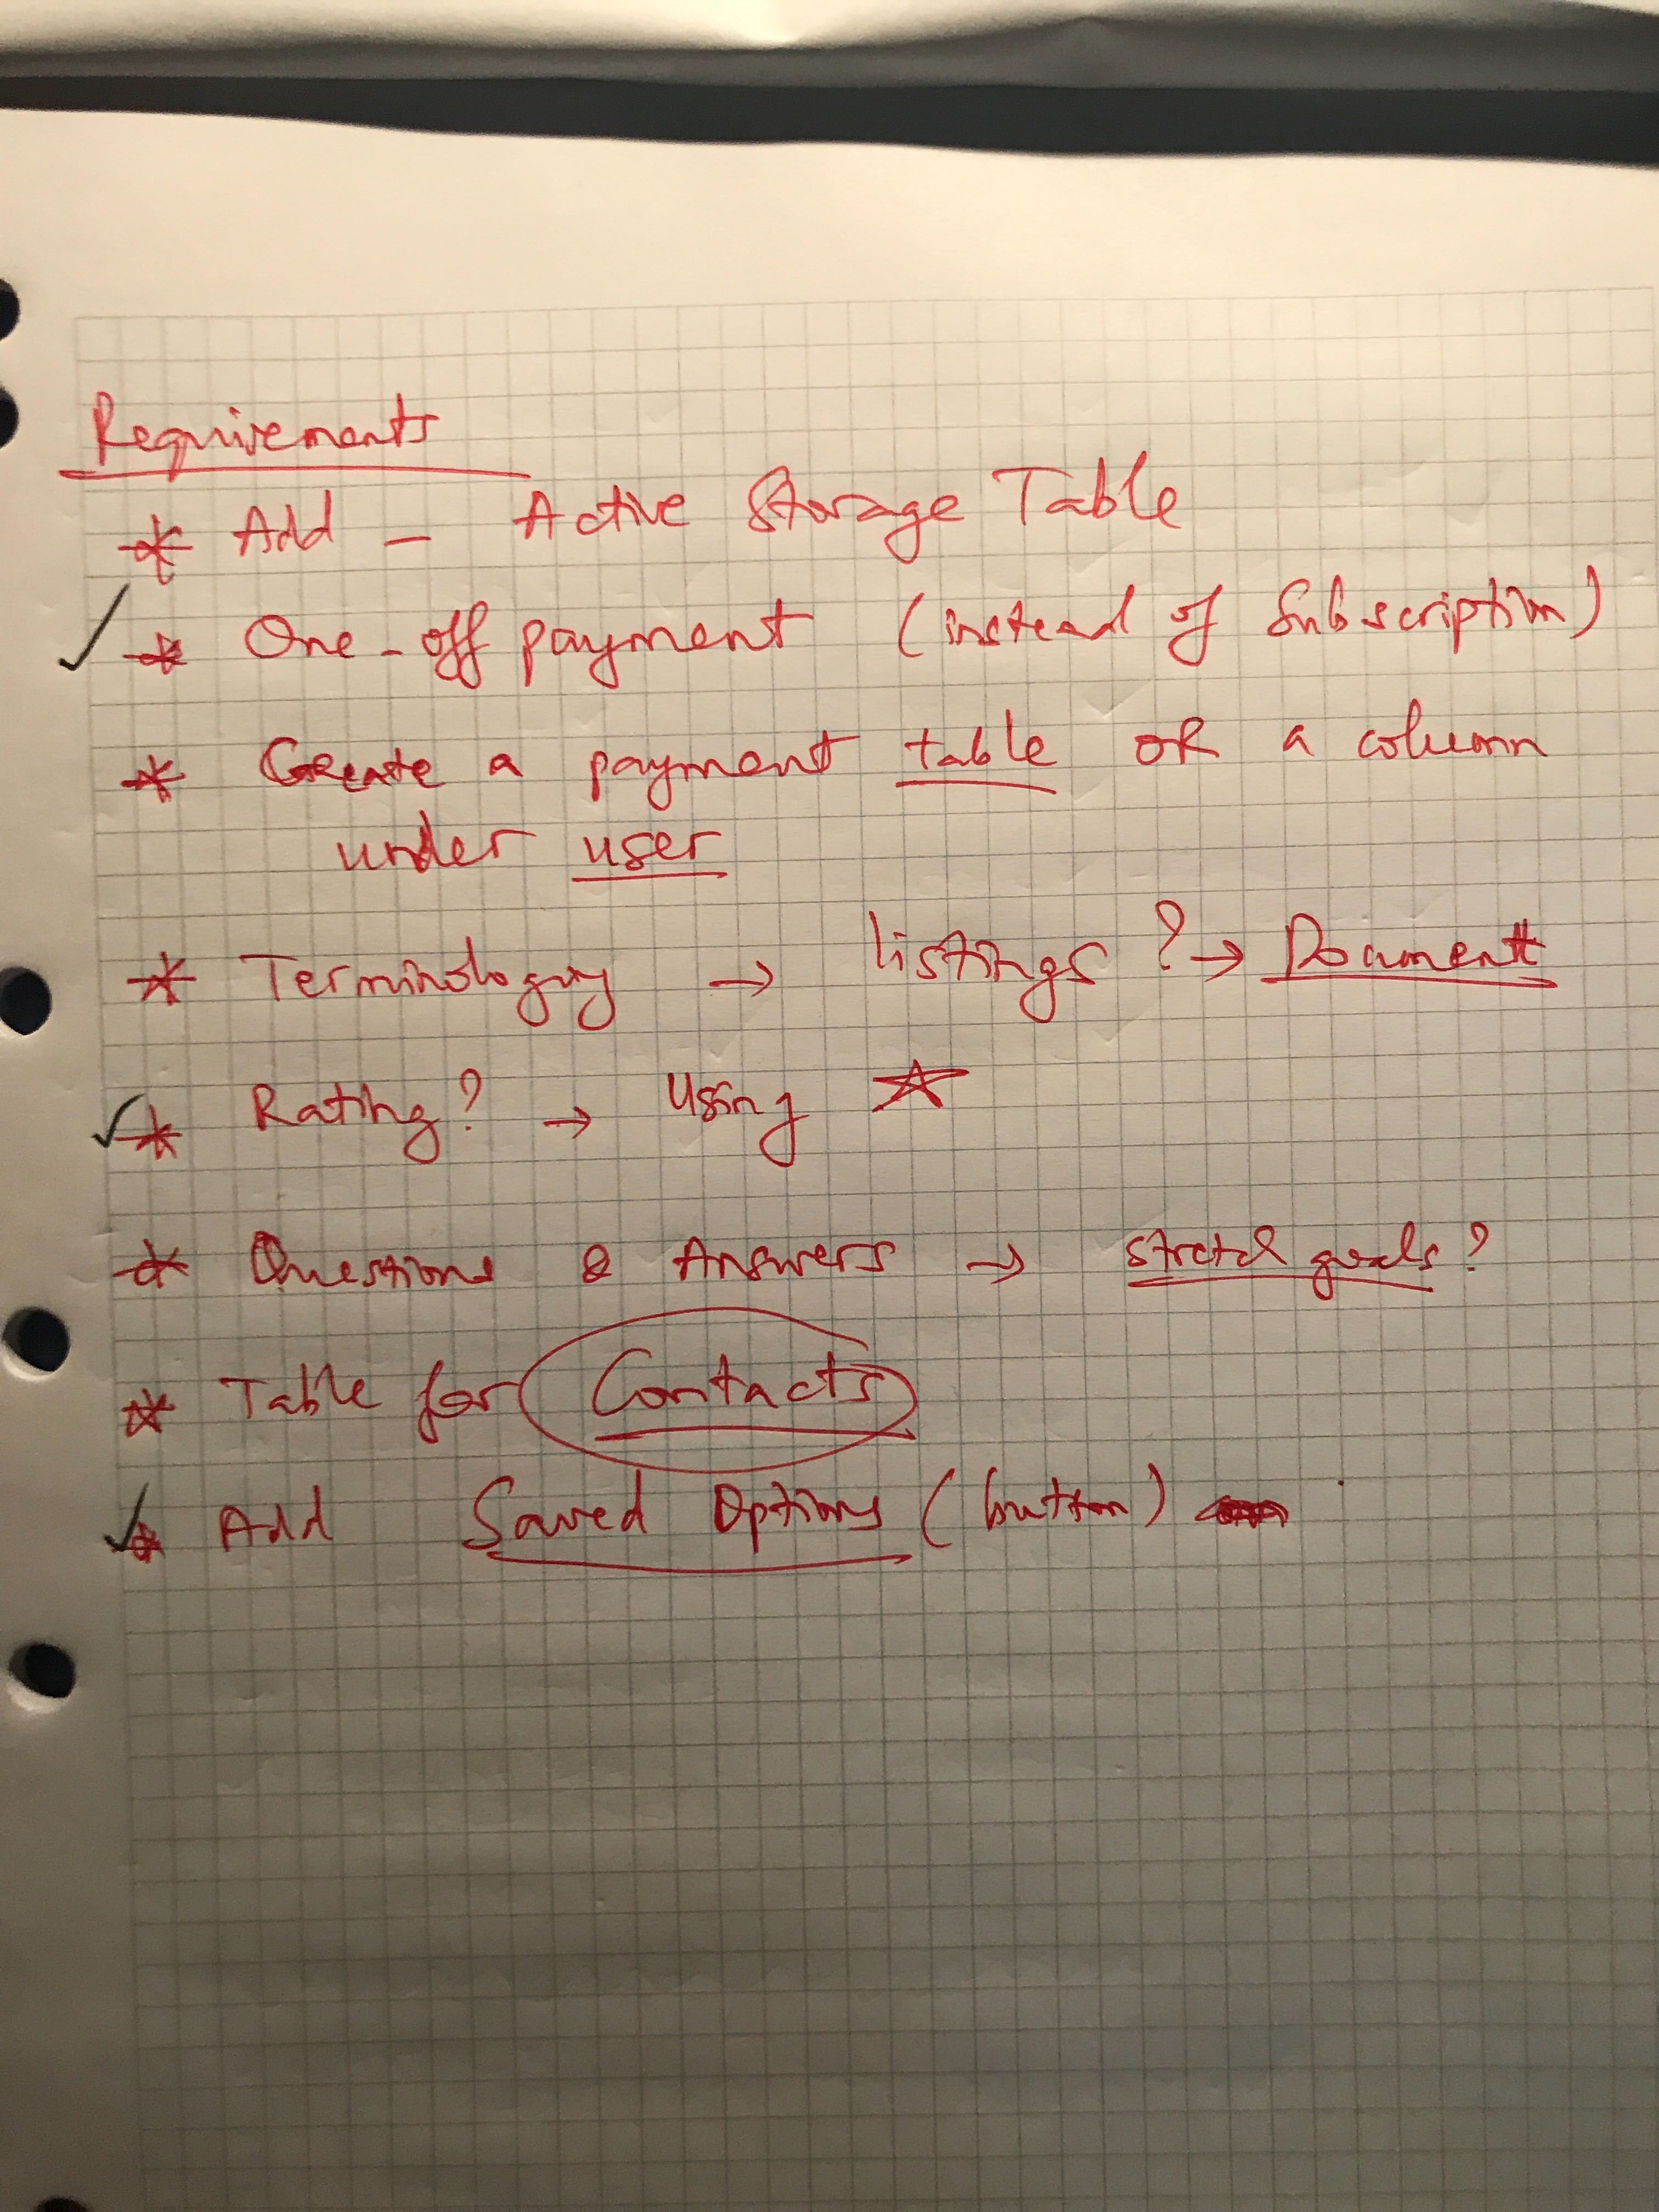 Requirements
* Add - Active Storage Table
✓ * One-off payment (instead of Subscription)
* Create a payment table OR a column
under user
* Terminology → listings? → Document
✓ * Rating? → Using ☆
* Questions & Answers → stretch goals?
* Table for Contacts
✓ * Add Saved Options (button)